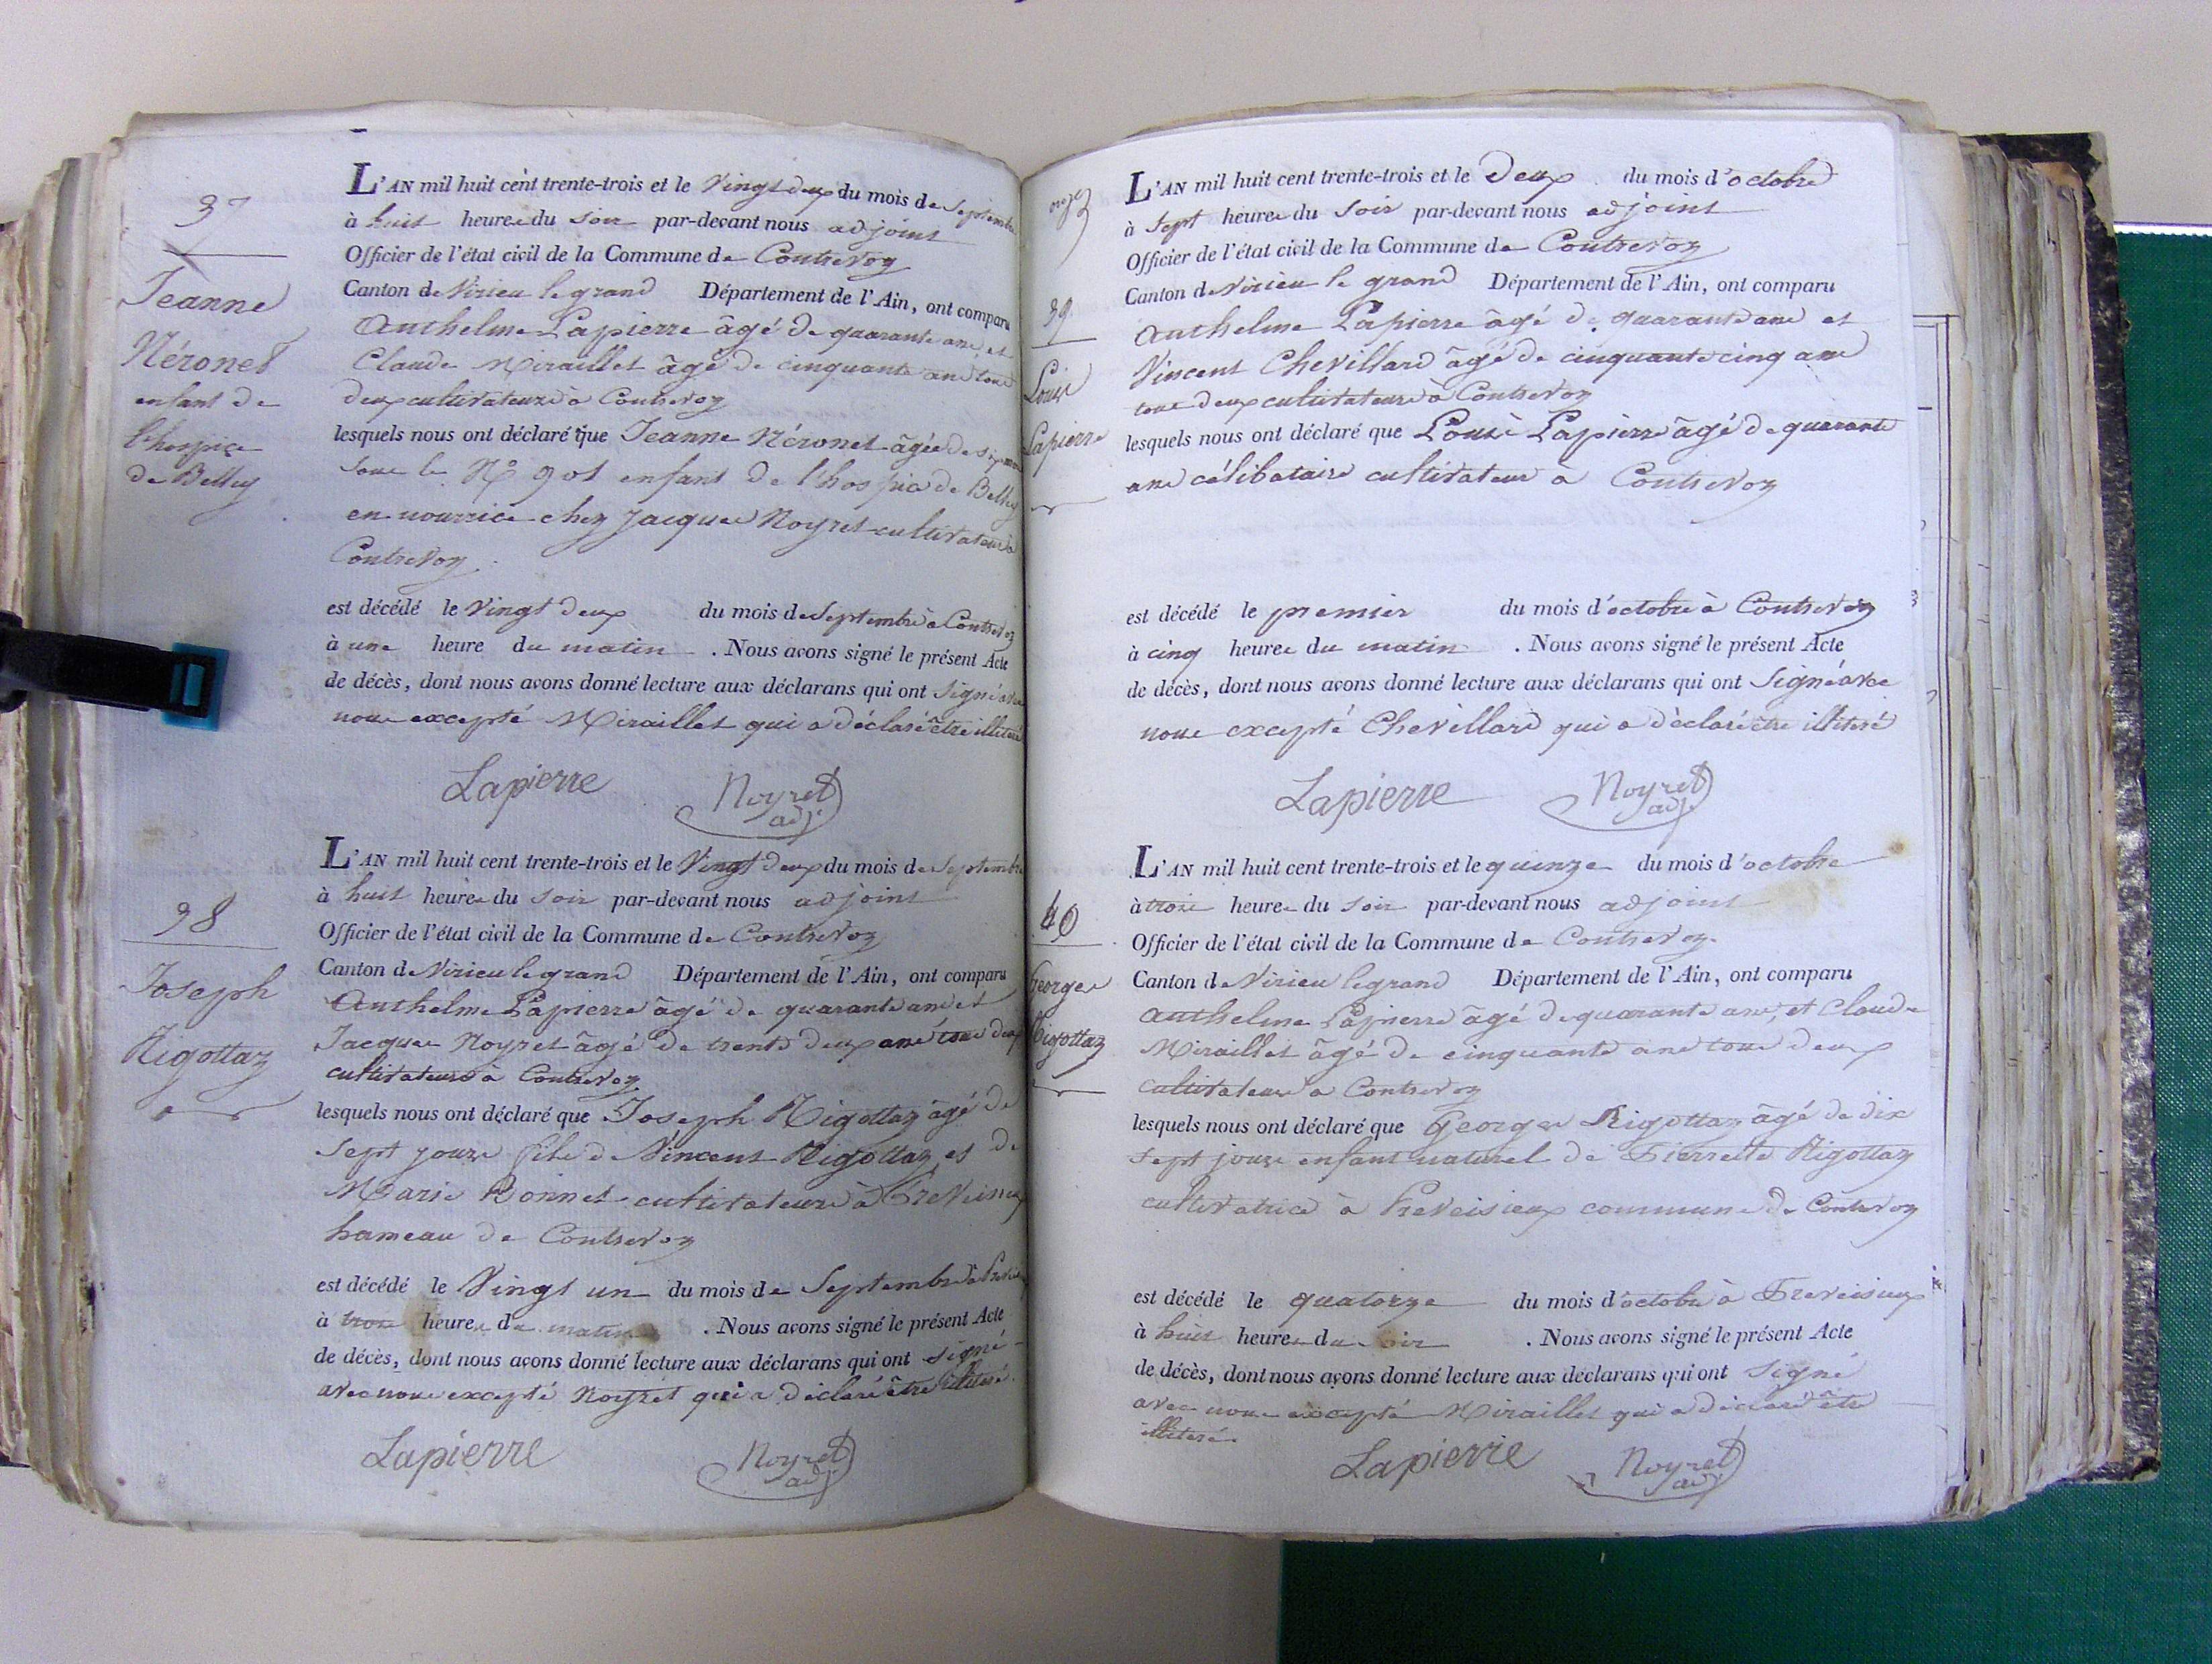 37
Jeanne
Néronet
enfant de
l'hospice
de Belley
L'AN mil huit cent trente-trois et le Vingt deux du mois de Septembre
à huit heures du Soir par-devant nous adjoint
Officier de l'état civil de la Commune de Contrevoz
Canton de Virieu le grand Département de l'Ain, ont comparu
Anthelme Lapierre âgé de quarante ans et
Claude Miraillet âgé de cinquante ans tous
deux cultivateurs à Contrevoz
lesquels nous ont déclaré que Jeanne Néronet âgée de six mois
sous le N° 901 enfant de l'hospice de Belley
en nourrice chez Jacques Noyret cultivateur à
Contrevoz
est décédé le Vingt deux du mois de Septembre à Contrevoz
à une heure du matin . Nous avons signé le présent Acte
de décès, dont nous avons donné lecture aux déclarans qui ont Signé avec
nous excepté Miraillet qui a déclaré être illiteré
Lapierre Noyret
adj.
38
Joseph
Rigottaz
L'AN mil huit cent trente-trois et le Vingt deux du mois de Septembre
à huit heures du Soir par-devant nous adjoint
Officier de l'état civil de la Commune de Contrevoz
Canton de Virieu le grand Département de l'Ain, ont comparu
Anthelme Lapierre âgé de quarante ans et
Jacques Noyret âgé de trente deux ans tous deux
cultivateurs à Contrevoz
lesquels nous ont déclaré que Joseph Rigottaz âgé de
Sept jours fils de Vincent Rigottaz et de
Marie Bonnet cultivateurs à Preveisieux
hameau de Contrevoz
est décédé le Vingt un du mois de Septembre à
à trois heures du matin . Nous avons signé le présent Acte
de décès, dont nous avons donné lecture aux déclarans qui ont signé
avec nous excepté Noyret qui a déclaré être illiteré
Lapierre Noyret
adj
onze
39
Louis
Lapierre
L'AN mil huit cent trente-trois et le Deux du mois d'octobre
à Sept heures du Soir par-devant nous adjoint
Officier de l'état civil de la Commune de Contrevoz
Canton de Virieu le grand Département de l'Ain, ont comparu
Anthelme Lapierre âgé de quarante ans et
Vincent Chevillard âgé de cinquante cinq ans
tous deux cultivateurs à Contrevoz
lesquels nous ont déclaré que Louis Lapierre âgé de quarante
ans célibataire cultivateur à Contrevoz
est décédé le premier du mois d'octobre à Contrevoz
à cinq heures du matin . Nous avons signé le présent Acte
de décès, dont nous avons donné lecture aux déclarans qui ont Signé avec
nous excepté Chevillard qui a déclaré être illiteré
Lapierre Noyret
adj.
40
Georges
Rigottaz
L'AN mil huit cent trente-trois et le quinze du mois d'octobre
à trois heures du Soir par-devant nous adjoint
Officier de l'état civil de la Commune de Contrevoz
Canton de Virieu le grand Département de l'Ain, ont comparu
Anthelme Lapierre âgé de quarante ans, et Claude
Miraillet âgé de cinquante ans tous deux
cultivateurs a Contrevoz
lesquels nous ont déclaré que Georges Rigottaz âgé de dix
sept jours enfant naturel de Pierrette Rigottaz
cultivatrice à Preveisieux commune de Contrevoz
est décédé le quatorze du mois d'octobre à Preveisieux
à huit heures du Soir . Nous avons signé le présent Acte
de décès, dont nous avons donné lecture aux déclarans qui ont Signé
avec nous excepté Miraillet qui a déclaré être
illiteré.
Lapierre Noyret
adj